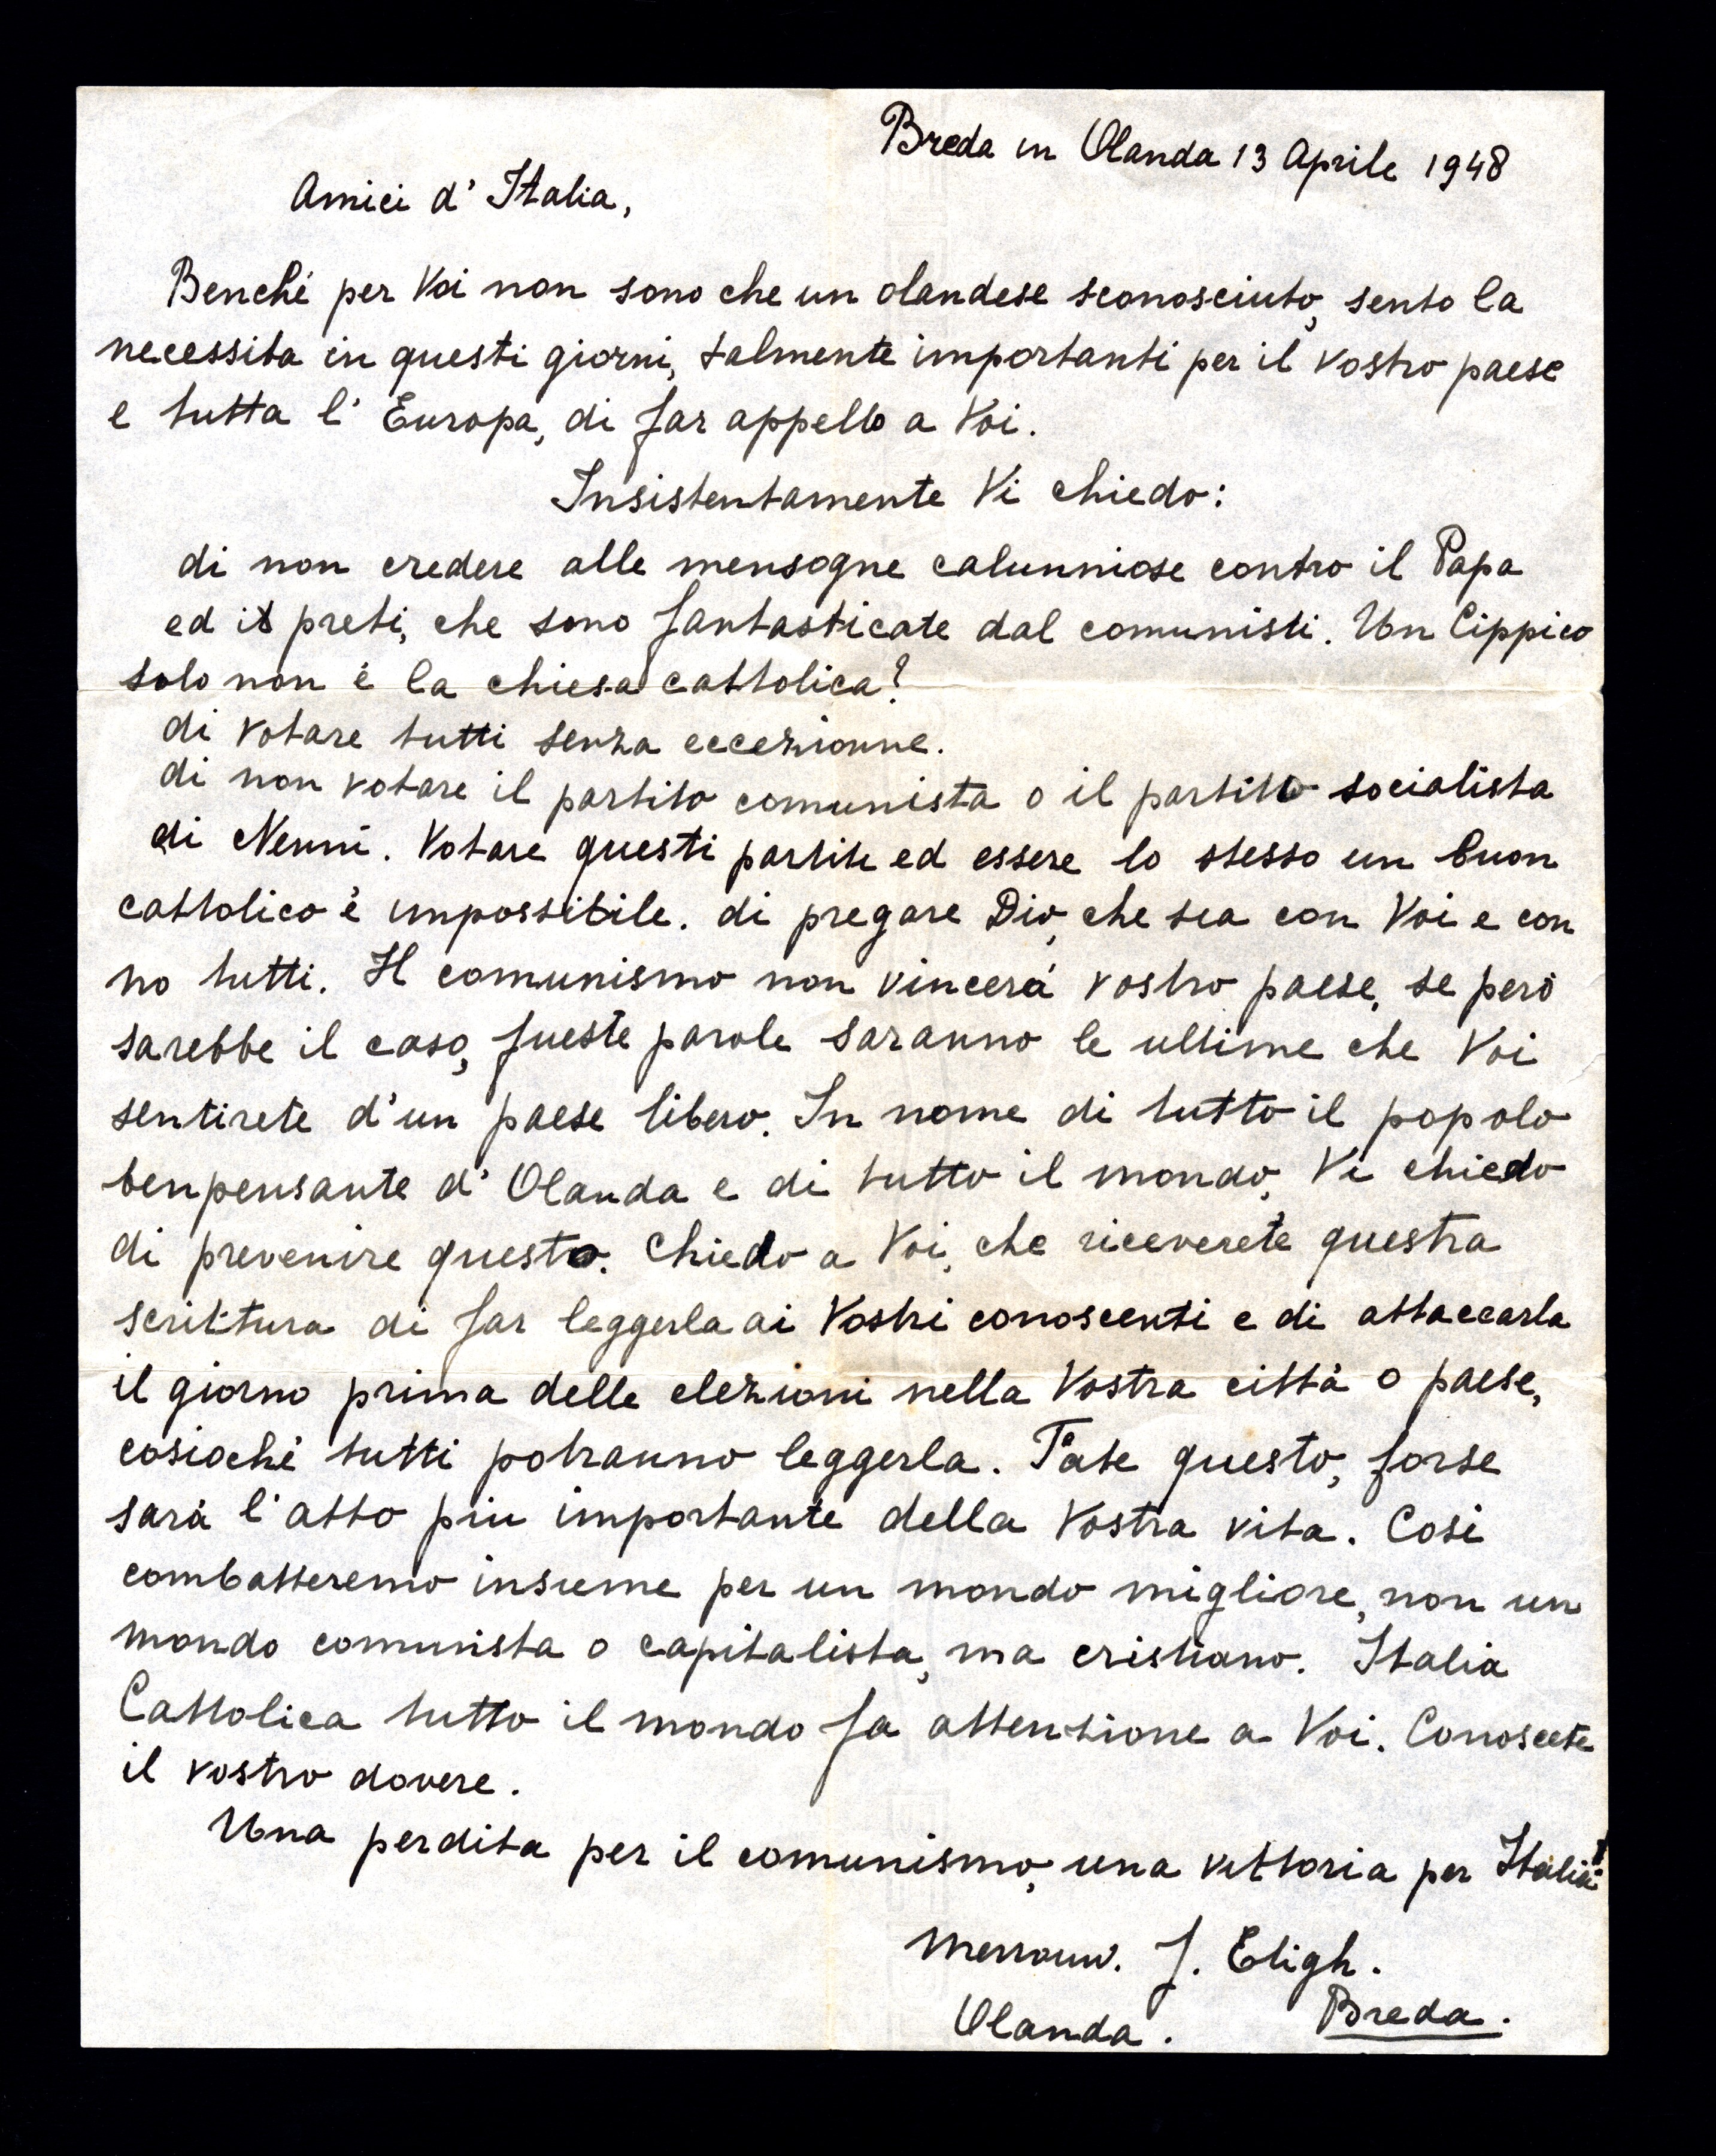 Breda in Olanda 13 Aprile 1948
Amici d' Italia,
Benché per Voi non sono che un olandese sconosciuto, sento la
necessita in questi giorni, talmente importanti per il vostro paese
e tutta l' Europa, di far appello a Voi.
Insistentamente Vi chiedo:
di non credere alle mensogne calunniose contro il Papa
ed i preti, che sono fantasticate dal comunisti. Un Cippico
solo non é la chiesa cattolica?
di votare tutti senza eccezionne.
di non votare il partito comunista o il partito socialista
di Nenni. Votare questi partiti ed essere lo stesso un buon
cattolico é impossibile. di pregare Dio, che sia con Voi e con
no tutti. Il comunismo non vincerá vostro paese, se peró
sarebbe il caso, queste parole saranno le ultime che Voi
sentirete d'un paese libero. In nome di tutto il popolo
benpensante d' Olanda e di tutto il mondo, Vi chiedo
di prevenire questo. Chiedo a Voi, che riceverete questra
scrittura di far leggerla ai Vostri conoscenti e di attaccarla
il giorno prima delle elezioni nella Vostra cittá o paese,
cosioché tutti potranno leggerla. Fate questo, forse
sará l'atto piu importante della Vostra vita. Cosi
combatteremo insieme per un mondo migliore, non un
mondo comunista o capitalista, ma cristiano. Italia
Cattolica tutto il mondo fa attenzione a Voi. Conoscete
il vostro dovere.
Una perdita per il comunismo, una vittoria per Italia!
Mevrouw. J. Eligh.
Olanda. Breda.